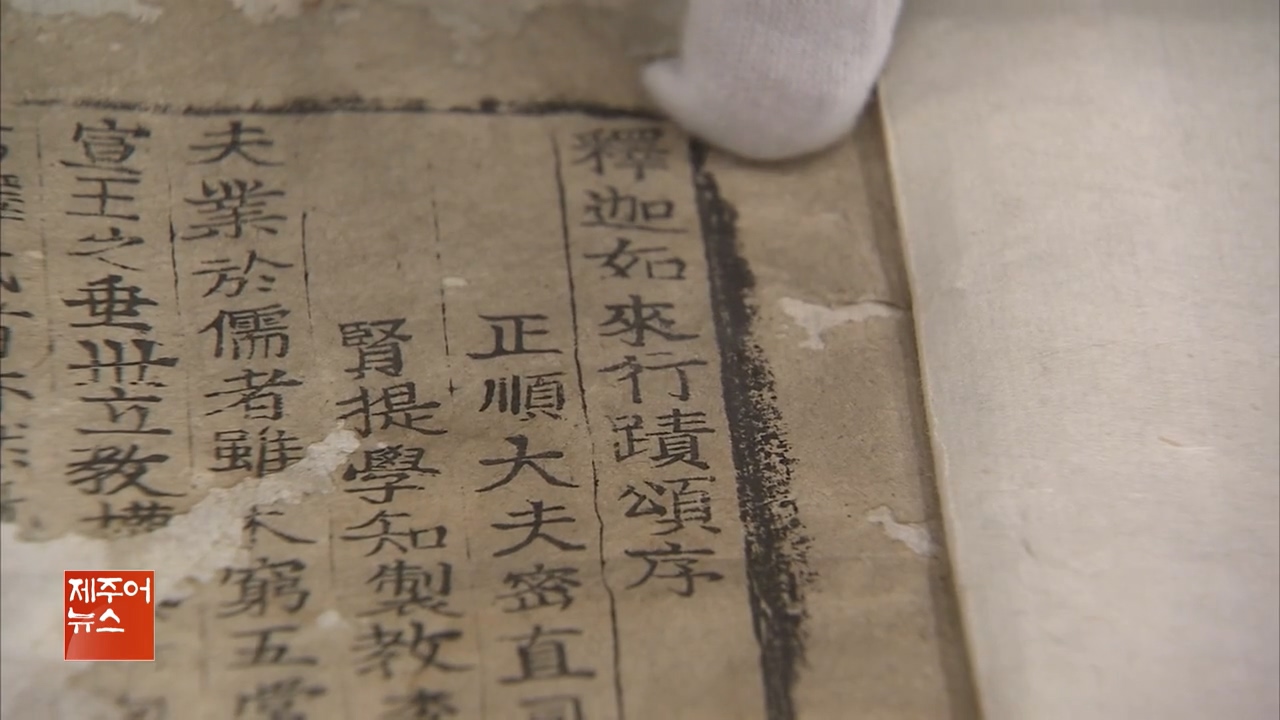 釋迦如來行蹟頌序
正順大夫密直司
賢提學知製教
夫業於儒者雖未窮五常
宣王之垂世立敎
제주어
뉴스